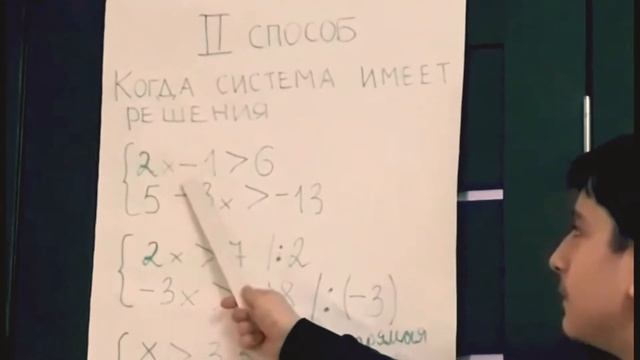 II СПОСОБ
КОГДА СИСТЕМА ИМЕЕТ
РЕШЕНИЯ
2x-1>6
5-3x>-13
2x>7 /:2
-3x> 8 /:(-3)
x>3